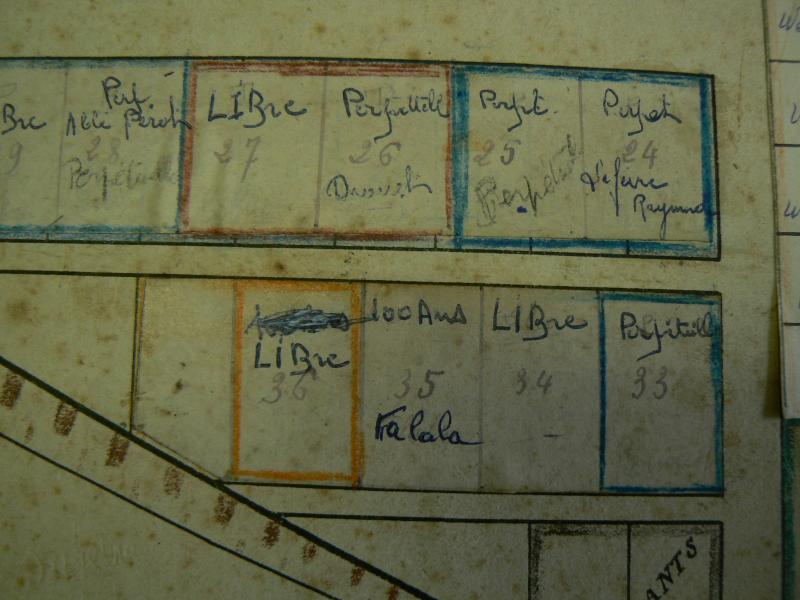 Bre
9
Perf
Abbé Pérot
28
Perpétuelle
LIBre
27
Perpétuelle
26
Perpet.
25
Perpétuel
Perpet
24
Lefevre
Raymond
LIBre
36
100 Ans
35
Falala
LIBre
34
-
Perpétuelle
33
ANTS